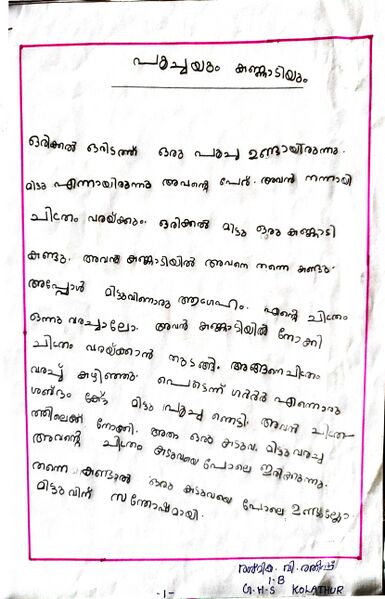 പൂച്ചയും കണ്ണാടിയും
ഒരിക്കൽ ഒരിടത്ത് ഒരു പൂച്ച ഉണ്ടായിരുന്നു.
മിട്ടു എന്നായിരുന്നു അവന്റെ പേര്. അവൻ നന്നായി
ചിത്രം വരയ്ക്കും. ഒരിക്കൽ മിട്ടു ഒരു കണ്ണാടി
കണ്ടു. അവൻ കണ്ണാടിയിൽ അവനെ തന്നെ കണ്ടു.
അപ്പോൾ മിട്ടുവിനൊരു ആഗ്രഹം. എന്റെ ചിത്രം
ഒന്നു വരച്ചാലോ. അവൻ കണ്ണാടിയിൽ നോക്കി
ചിത്രം വരയ്ക്കാൻ തുടങ്ങി. അങ്ങനെ ചിത്രം
വരച്ച് കഴിഞ്ഞു. പെട്ടെന്ന് ഗർർർ എന്നൊരു
ശബ്ദം കേട്ടു. മിട്ടു പൂച്ച ഞെട്ടി. അവൻ ചിത്ര
ത്തിലേക്ക് നോക്കി. അതാ ഒരു കടുവ. മിട്ടു വരച്ച
അവന്റെ ചിത്രം കടുവയെ പോലെ ഇരിക്കുന്നു.
തന്നെ കണ്ടാൽ ഒരു കടുവയെ പോലെ ഉണ്ടല്ലോ
മിട്ടുവിന് സന്തോഷമായി.
വി.
1.B
G.H.S KOLATHUR
-1-